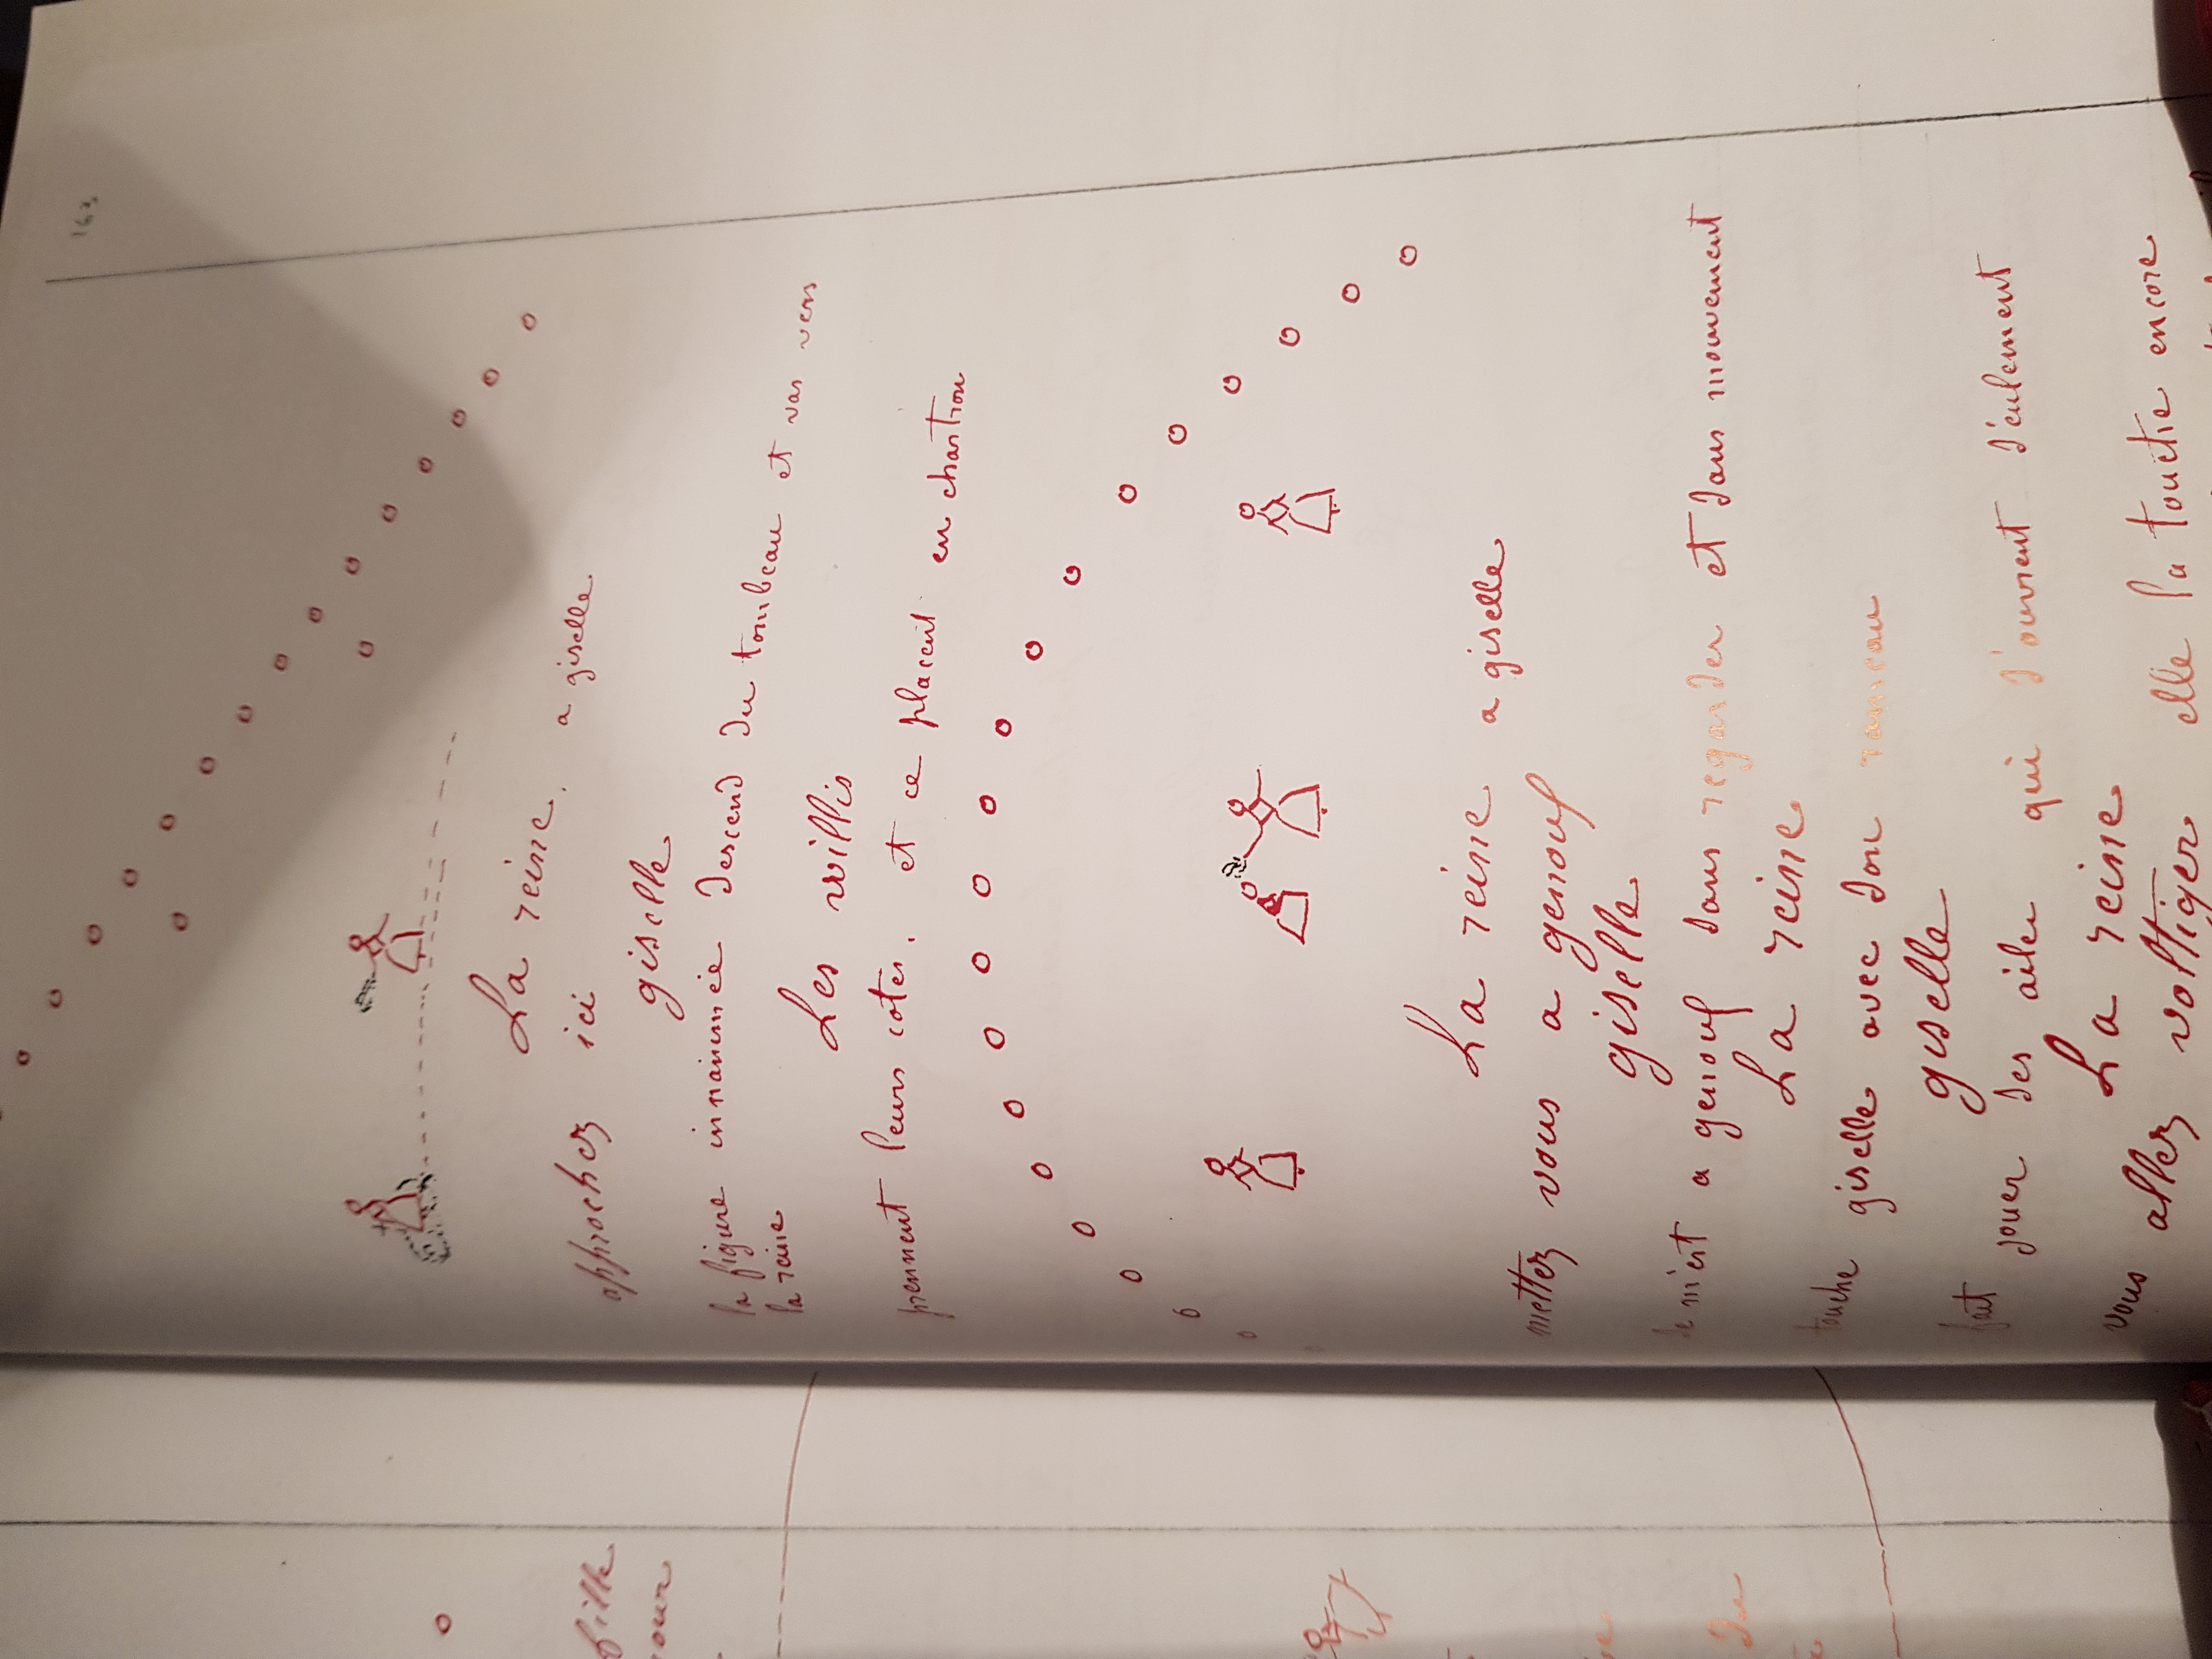 163
La reine. a giselle
approchez ici
giselle
la figure innanimée descend du tombeau et vas vers
la reine
Les willis
prennent leurs cotes. et ce placent en
La reine a giselle
mettez vous a genouf
giselle
se m'est a genouf sans regarder et sans mouvement
La reine
touche giselle avec son rameau
giselle
fait jouer ses ailes qui s'ouvrent s'eulement
La reine
vous allez voltiger elle la touche encore
fille
our
du